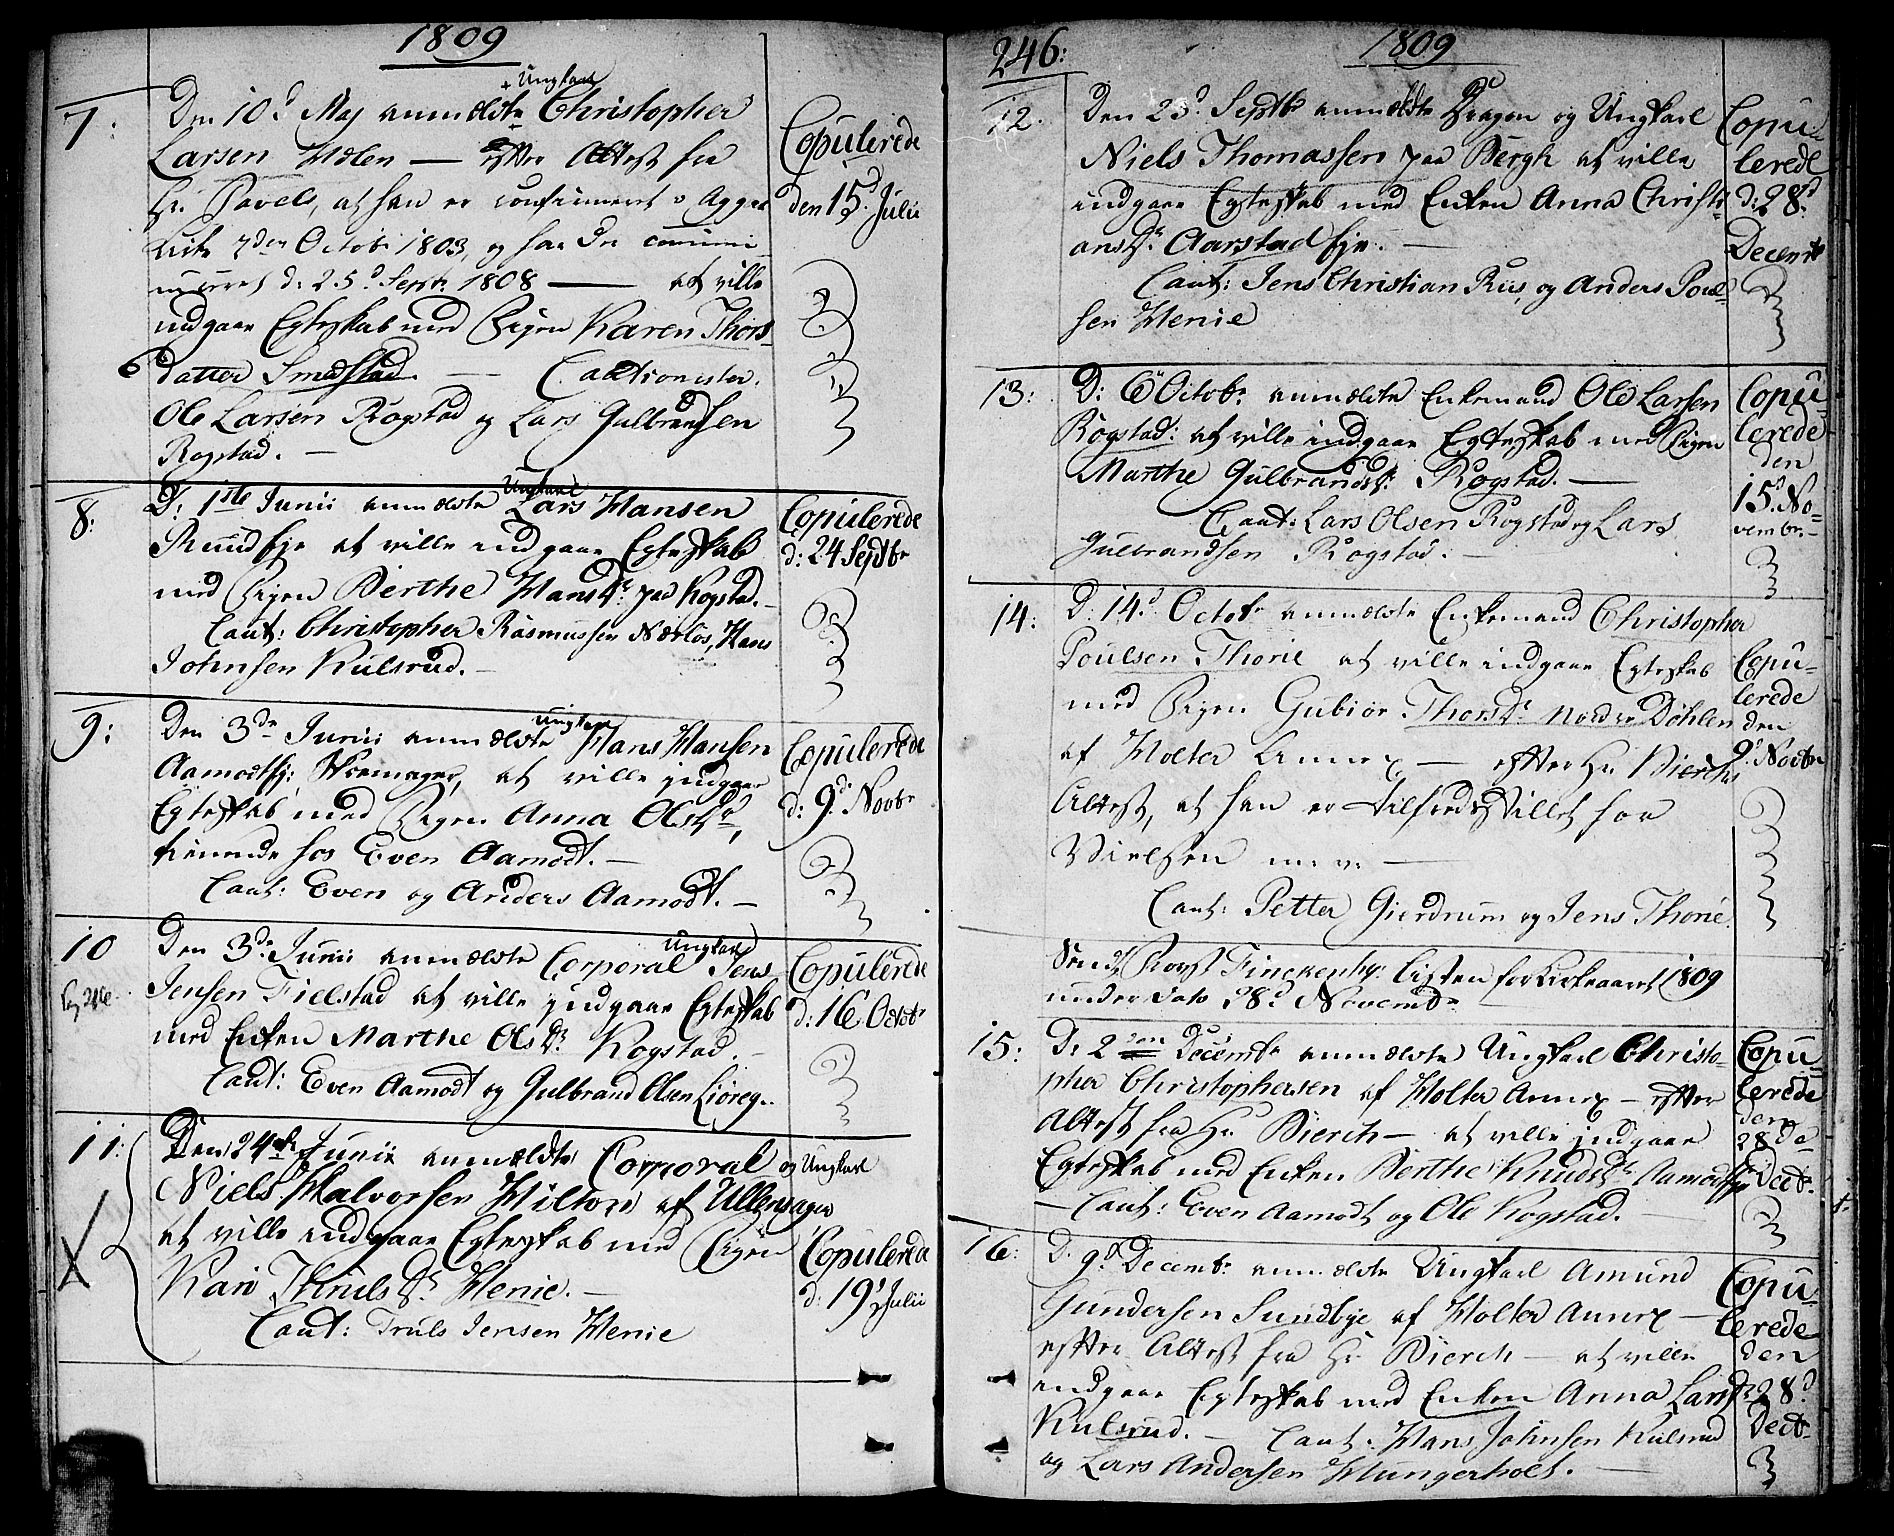 1809
7:
Den 10d Maj anmældte + Ungkarl Christopher
Larsen Holen — efter Attest fra
Hr. Pavels, at han er confirmeret
Kirke 7den Octobr 1803, og har
d: 25d Septr 1808 — at ville
indgaae Egteskab med Pigen Karen Thors
datter Smedstad. — Cautionister.
Ole Larsen Rogstad og Lars Gulbrandsen
Rogstad. —
Copulerede
den 15d Julii
8:
D: 1ste Junii anmældte Ungkarl Lars Hansen
Ruudeje at ville indgaae Egteskab
med Pigen Berthe Hansdr paa Rogstad.
Caut: Christopher Rasmussen Nærlös, Hans
Johnsen Kulsrud. —
Copulerede
d: 24 Septbr
9:
Den 3de Junii anmældte Ungkarl Hans Hansen
Aamodtej: Skomager, at ville indgaae
Egteskab med Pigen Anna Olsdr,
tienende hos Even Aamodt. —
Caut: Even og Anders Aamodt. —
Copulerede
d: 9d Novbr
10
Den 3de Junii anmældte Corporal Ungkarl Jens
Jensen Fielstad at ville indgaae Egteskab
med Enken Marthe Olsdr Rogstad. —
Caut: Even Aamodt og Gulbrand Olsen Liöreg.
Copulerede
d: 16 Octobr
11:
Den 24de Junii anmældte Corporal og Ungkarl
Niels Halvorsen Hilton af Ullensager
at ville indgaae Egteskab med Pigen
Kari Thrulsdr Henie. —
Caut: Truls Jensen Henie
Copulerede
d: 19d Julii
246:
1809
12.
Den 23d Septbr anmældte Dragon og Ungkarl
Niels Thomassen paa Bergh at ville
indgaae Egteskab med Enken Anna Christi-
ansdr Aarstad eje. —
Caut: Jens Christian Rus, og Anders Poul-
sen Henie
Copu-
lerede
d: 28d
Decembr
13:
D: 6 Octobr anmældte Enkemand Ole Larsen
Rogstad: at ville indgaae Egteskab med Pigen
Marthe Gulbrandsdr: Rogstad. —
Caut: Lars Olsen Rogstad og Lars
Gulbrandsen Rogstad. —
Copu-
lerede
den
15d No-
vembr. —
14:
D: 14d Octobr anmældte Enkemand Christopher
Poulsen Thorie at ville indgaae Egteskab
med Pigen Gubiör Thorsdr Nordre Döhlen
af Holter Annex — efter Hr Bierchs
Attest, at han er tilfredsstillet for
Vielsen
Caut: Petter Gierdrum og Jens Thorie.
Copu-
lerede
den
9d Novbr
Sendt Provst Finckenh: Listen for Kirkeaaret 1809
under Dato 28d Novembr
15:
D: 2den Decembr anmældte Ungkarl Christo-
pher Christophersen af Holter Annex — efter
Attest fra Hr Bierch — at ville indgaae
Egteskab med Enken Berthe Knudsdr Aamodteje
— Caut: Even Aamodt og Ole Rogstad.
Copu-
lerede
den
28de
Decbr.
16:
D. 9d Decembr anmældte Ungkarl Amund
Gundersen Sundbye af Holter Annex —
efter Attest fra Hr Bierch — at ville
indgaae Egteskab med Enken Anna Larsdr
Kulsrud. — Caut: Hans Johnsen Kulsrud
og Lars Andersen Hungerholt. —
Copu-
lerede
den
28d
Decbr